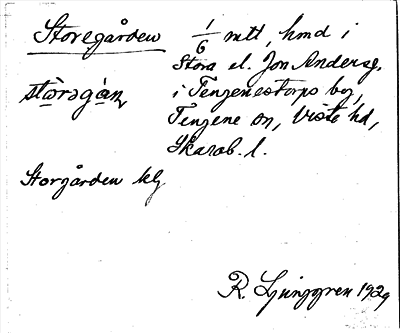 Storegården 1/6 mtl, hmd i
Stora el. Jon Anders g.
stòrəgàn, i Tengenestorps by,
Tengene sn, Viste hd,
Skarab. l.
Storgården klj
R. Ljunggren 1929